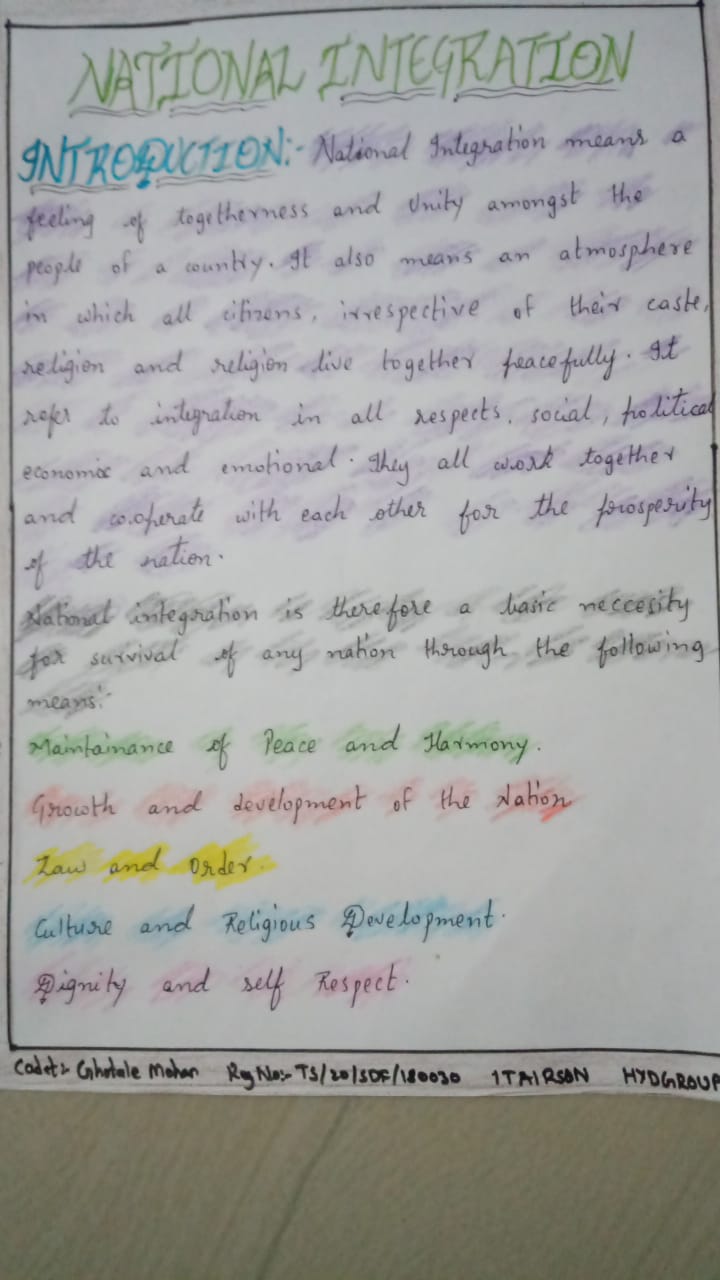 NATIONAL INTEGRATION
INTRODUCTION:- National Integration means a
feeling of togetherness and Unity amongst the
people of a country. It also means an atmosphere
in which all citizens, irrespective of their caste,
religion and religion live together peacefully. It
refer to integration in all respects, social, political
economic and emotional. They all work together
and co.operate with each other for the prosperity
of the nation.
National integration is therefore a basic neccesity
for survival of any nation through the following
means:-
Maintainance of Peace and Harmony.
Growth and development of the Nation
Law and Order.
Culture and Religious Development.
Dignity and self Respect.
Cadet:- Ghotale Mohan Reg No:- TS/20/SDF/180030 1TAIRSQN HYDGROUP